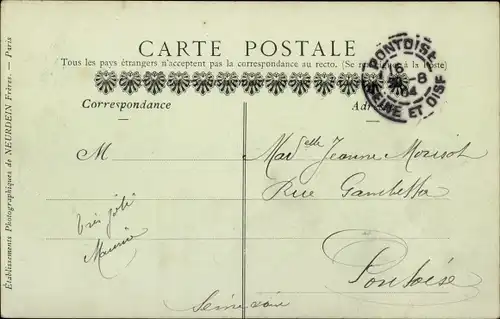 CARTE POSTALE
Tous les pays étrangers n'acceptent pas la correspondance au recto. (Se renseigner à la Poste)
Correspondance
Adresse
PONTOISE
16
8
04
SEINE ET OISE
M
Mad elle Jeanne Morisot
Rue Gambetta
Très joli
Maurice
Pontoise
Seine & oise
Établissements Photographiques de NEURDEIN Frères. — Paris